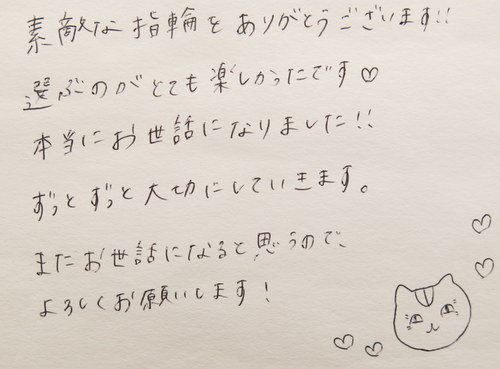 素敵な指輪をありがとうございます!!
選ぶのがとても楽しかったです♡
本当にお世話になりました!!
ずっとずっと大切にしていきます。
またお世話になると思うので、
よろしくお願いします!